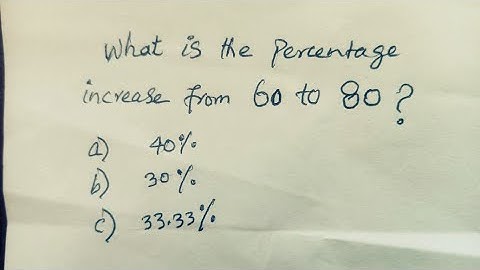 What is the Percentage
increase from 60 to 80 ?
a) 40%
b) 30%
c) 33.33%